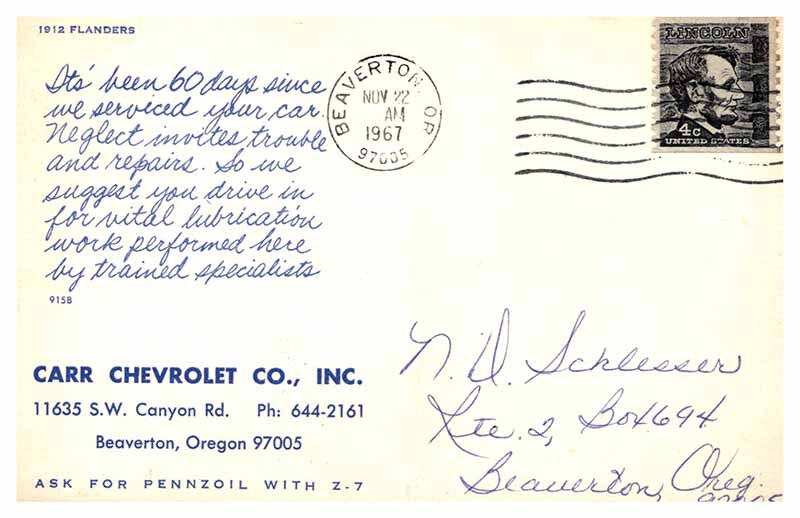 1912 FLANDERS
Its' been 60 days since
we serviced your car.
Neglect invites trouble
and repairs. So we
suggest you drive in
for vital lubrication
work performed here
by trained specialists
915B
CARR CHEVROLET CO., INC.
11635 S.W. Canyon Rd. Ph: 644-2161
Beaverton, Oregon 97005
ASK FOR PENNZOIL WITH Z-7
BEAVERTON, OR
NOV 22
AM
1967
97005
LINCOLN
4c
UNITED STATES
N. D. Schlesser
Rte. 2, Box 694
Beaverton, Oreg.